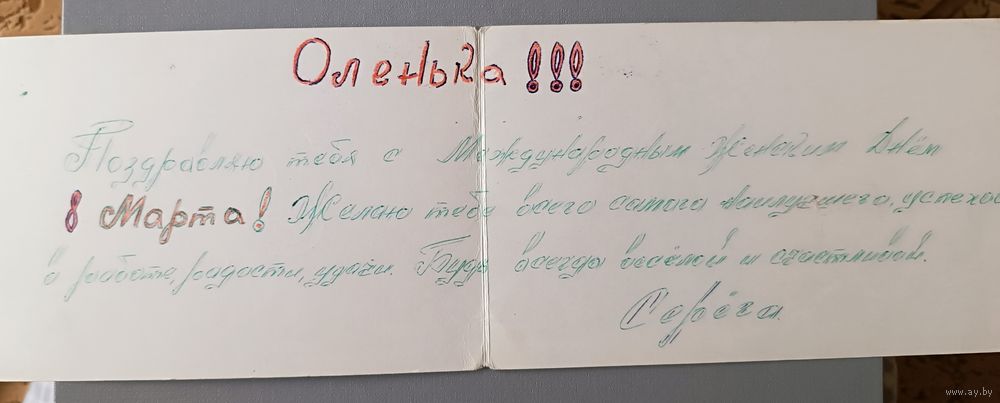 Оленька!!!
Поздравляю тебя с Международным Женским Днём
8 Марта! Желаю тебе всего самого наилучшего, успехов
в работе, радости, удачи. Будь всегда весёлой и счастливой.
Серёга
www.ay.by